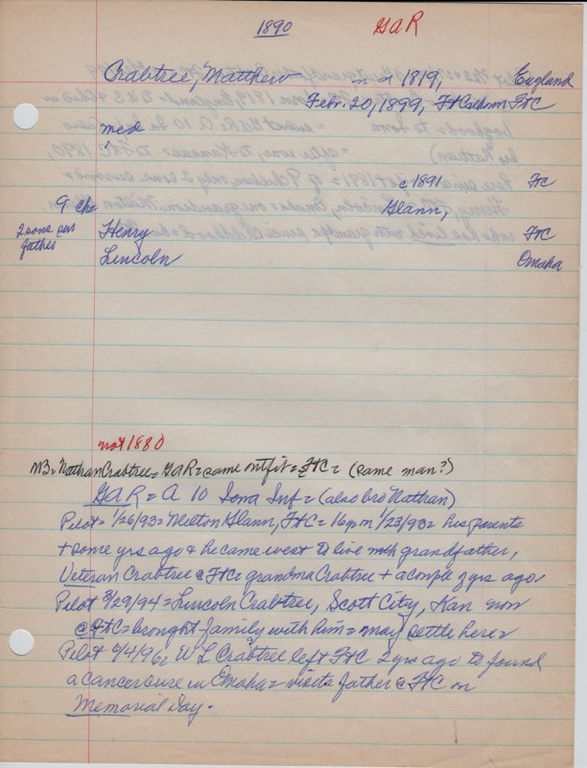 1890 GAR
Crabtree, Matthew 1819, England
Febr. 20, 1899, Ft Calhoun FtC
med
c 1891 FC
9 chn Glann,
2 sons per father Henry FTC
Lincoln Omaha
not 1880
NB= Nathan Crabtree= GAR= same outfit= FtC= (same man?)
GAR= A 10 Iowa Inf= (also bro Nathan)
Pilot= 1/26/93= Milton Glann, FtC= 16 pm 1/23/93= his parents
+ some yrs ago & he came west to live with grandfather,
Veteran Crabtree @ FtC= grandma Crabtree + a couple yrs ago.
Pilot 3/29/94= Lincoln Crabtree, Scott City, Kan now
@ FtC= brought family with him= may settle here=
Pilot W L Crabtree left FtC 2 yrs ago to found
a cancer cure in Omaha= visits father @ FtC on
Memorial Day.